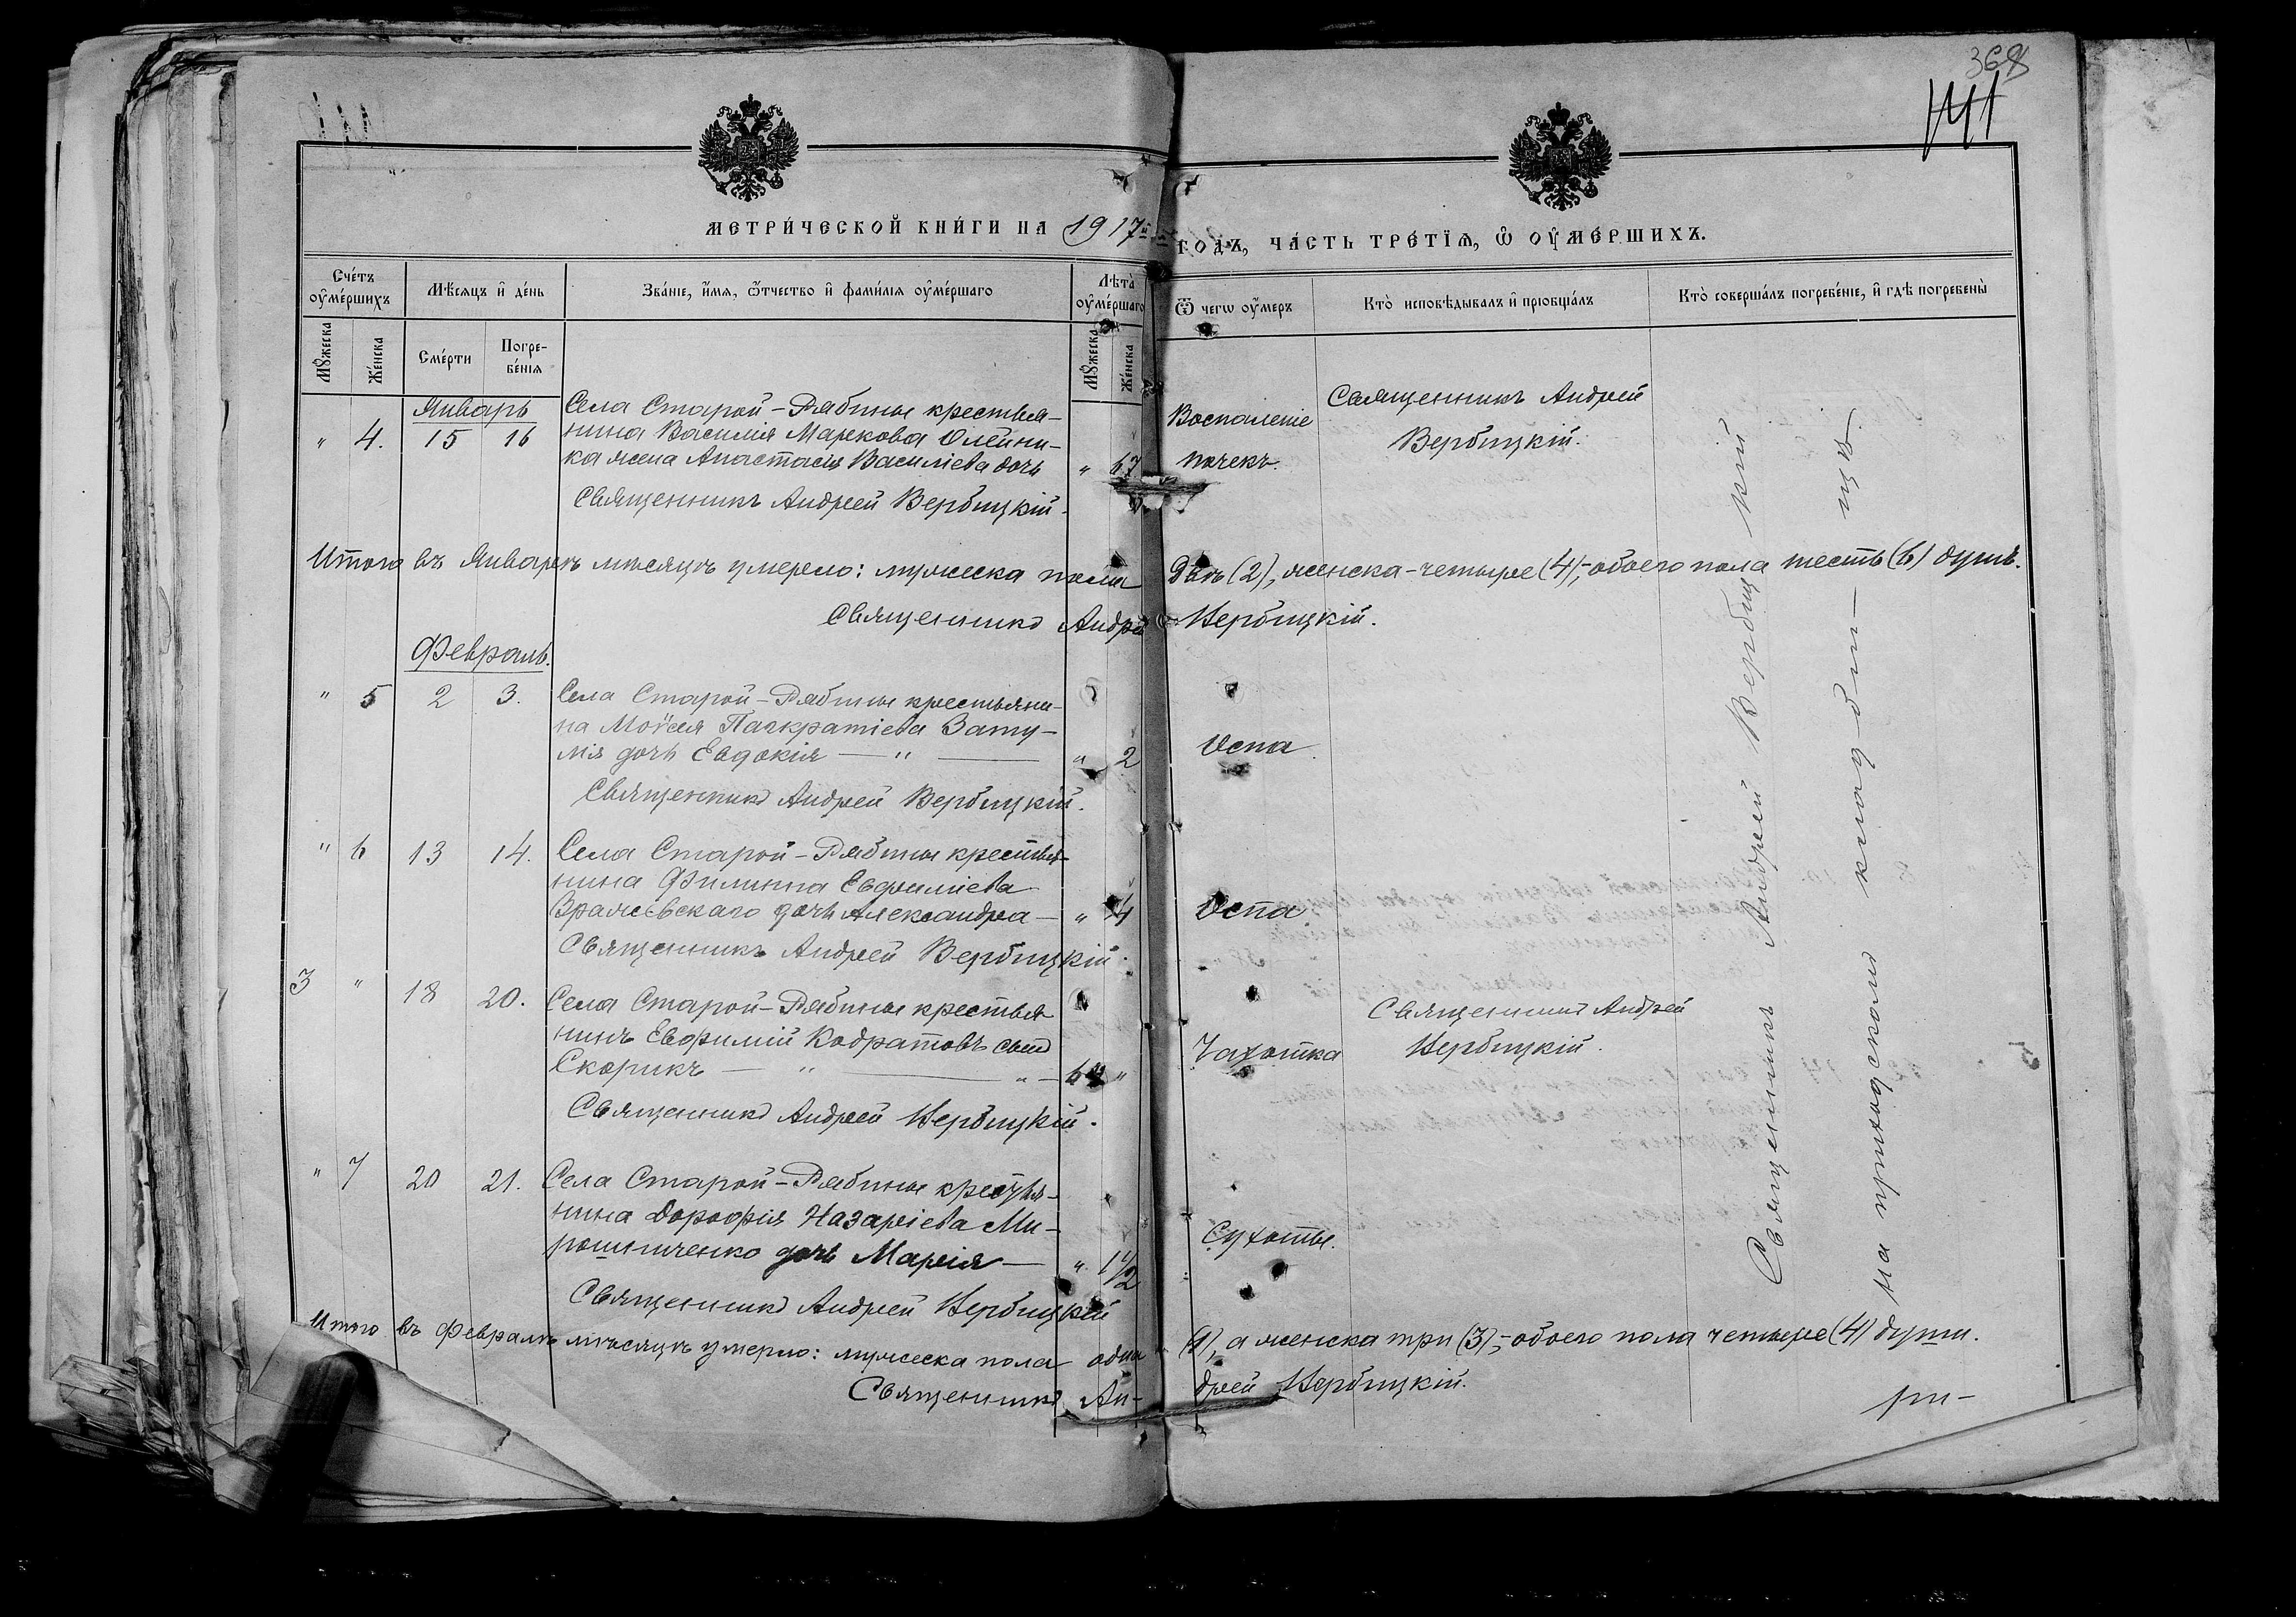 368
141
МЕТРИ́ЧЕСКОЙ КНИ́ГИ НА 1917й
ГОДЪ, ЧА́СТЬ ТРЕ́ТЇѦ, Ѽ ОУ҆МЕ́РШИХЪ.
Сче́тъ оу҆ме́ршихъ
Мѣ́сяцъ и҆ де́нь
Зва́нїе, и҆́мя, ѻ҆́тчество и҆ фами́лїя оу҆ме́ршаго
Лѣта̀ оу҆ме́ршаго
Ѿ чегѡ оу҆́меръ
Кто̀ исповѣ́дывалъ и҆ прїобща́лъ
Кто̀ соверша́лъ погребе́нїе, и҆ гдѣ̀ погребены̀
Мꙋ́жеска
Же́нска
Сме́рти
Погребе́нїя
Мꙋ́жеска
Же́нска
Январь
" 4. 15 16
Села Старой-Рябины крестья-
нина Василія Маркова Олейни-
ка жена Анастасія Василіева дочь " 67
Воспаленіе
почекъ.
Священникъ Андрей
Вербицкій.
Священникъ Андрей Вербицкій.
Итого въ Январѣ мѣсяцѣ умерло: мужеска пола два (2), женска-четыре (4),-обоего пола шесть (6) душъ.
Священникъ Андрей Вербицкій.
Февраль.
" 5 2 3.
Села Старой-Рябины крестьяни-
на Моѵсея Панкратіева Зату-
лія дочь Евдокія — " — " 2
Оспа
Священникъ Андрей Вербицкій.
" 6 13 14.
Села Старой-Рябины крестья-
нина Филиппа Евфиміева
дочь Александра — " 4
Оспа
Священникъ Андрей Вербицкій.
3 " 18 20.
Села Старой-Рябины крестья-
нинъ Евфимій Кодратовъ сынъ
Скорикъ — " — "
Чахотка
Священникъ Андрей
Вербицкій.
Священникъ Андрей Вербицкій.
" 7 20 21.
Села Старой-Рябины крестья-
нина Дорофія Назаріева Ми-
рошниченко дочь Марія — " 1 1/2
Сухоты.
Священникъ Андрей Вербицкій
Итого въ Февралѣ мѣсяцѣ умерло: мужеска пола одна (1), а женска три (3),-обоего пола четыре (4) души.
Священникъ Ан-дрей Вербицкій.
Священникъ Андрей Вербицкій
на приходскомъ кладби-
щѣ
ри-